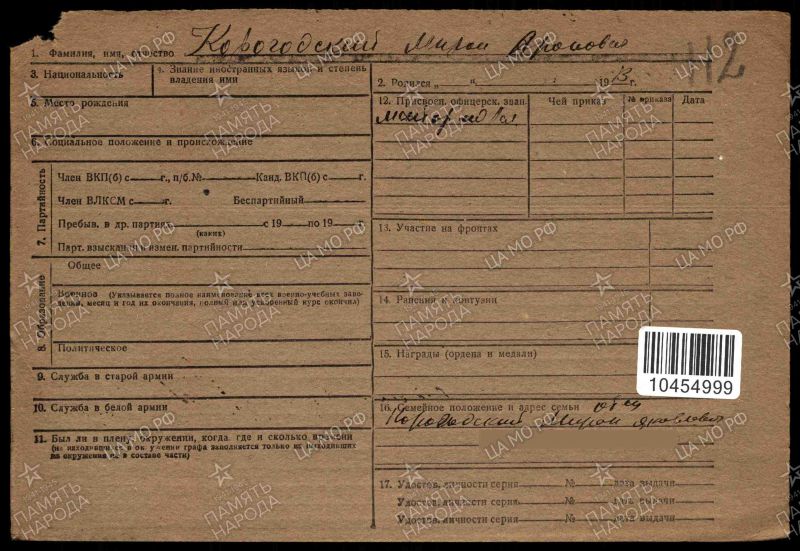 112
1. Фамилия, имя, отчество Корогодский Мирон
3. Национальность
4. Знание иностранных языков и степень владения ими
2. Родился „ “ : 1913 г.
5. Место рождения
6. Социальное положение и происхождение
7. Партийность
Член ВКП(б) с г., п/б.№ Канд. ВКП(б) с г.
Член ВЛКСМ с г. Беспартийный
Пребыв. в др. партиях с 19 по 19 г.
(каких)
Парт. взыскания и измен. партийности
8. Образование
Общее
Военное (Указывается полное наименование всех военно-учебных заве-
дений, месяц и год их окончания, полный или ускоренный курс окончил)
Политическое
9. Служба в старой армии
10. Служба в белой армии
11. Был ли в плену, окружении, когда, где и сколько времени
(на находившихся в окружении графа заполняется только на выходивших
из окружения не в составе части)
12. Присвоен. офицерск. зван. Чей приказ № приказа Дата
майор
13. Участие на фронтах
14. Ранения и контузии
15. Награды (ордена и медали)
10454999
16. Семейное положение и адрес семьи отец
Корогодский Мирон Яковлевич
17. Удостов. личности серия № дата выдачи
Удостов. личности серия № дата выдачи
Удостов. личности серия № дата выдачи
ПАМЯТЬ НАРОДА
ЦА МО РФ